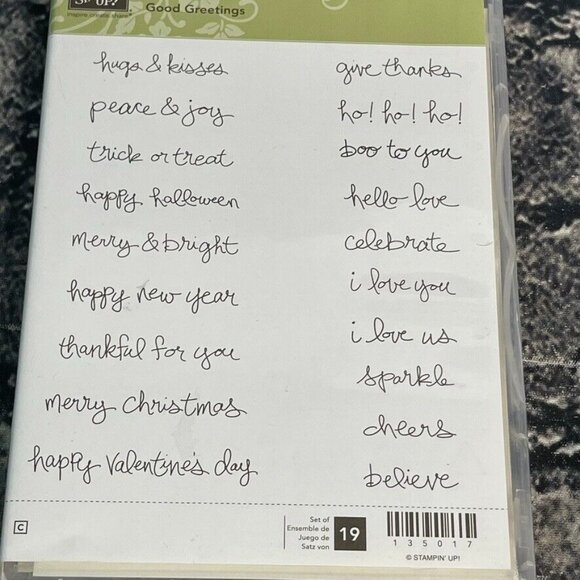 UP!
inspire. create. share.
Good Greetings
hugs & kisses
peace & joy
trick or treat
happy halloween
merry & bright
happy new year
thankful for you
merry christmas
happy valentine's day
give thanks
ho! ho! ho!
boo to you
hello love
celebrate
i love you
i love us
sparkle
cheers
believe
C
Set of
Ensemble de
Juego de
Satz von
19
135017
© STAMPIN' UP!